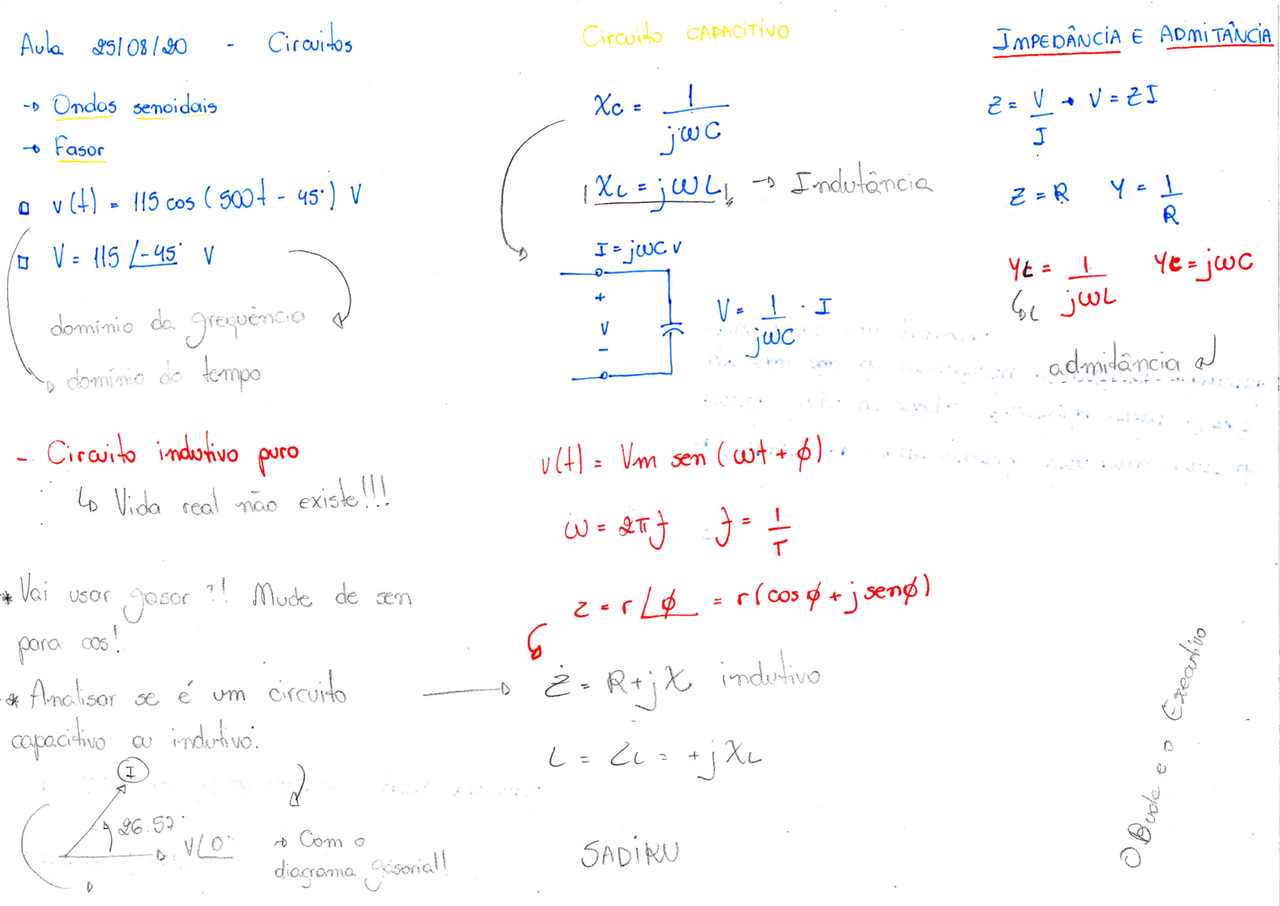 Aula 25/08/20 - Circuitos
→ Ondas senoidais
→ Fasor
v(t) = 115 cos (500t - 45°) V
V = 115 ∠-45° V
domínio da frequência
domínio do tempo
- Circuito indutivo puro
↳ Vida real não existe!!!
* Vai usar fasor ?! Mude de sen
para cos!
* Analisar se é um circuito
capacitivo ou indutivo.
I
26.57°
V∠0°
→ Com o
diagrama fasorial!
Circuito CAPACITIVO
Xc = 1/jωC
XL = jωL → Indutância
I = jωC v
+
V
-
V = 1/jωC · I
v(t) = Vm sen (ωt + φ)
ω = 2πf f = 1/T
z = r∠φ = r(cosφ + j senφ)
Ż = R + jX indutivo
L = ZL = +jXL
SADIKU
IMPEDÂNCIA E ADMITÂNCIA
Z = V/I → V = ZI
Z = R Y = 1/R
YL = 1/jωL Yc = jωC
↳L
admitância
O Buda e o Executivo